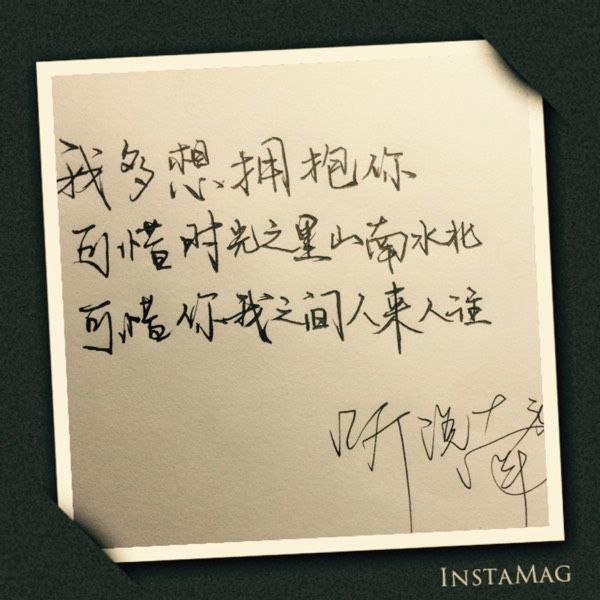 我多想拥抱你
可惜时光之里山南水北
可惜你我之间人来人往
听说
INSTAMAG